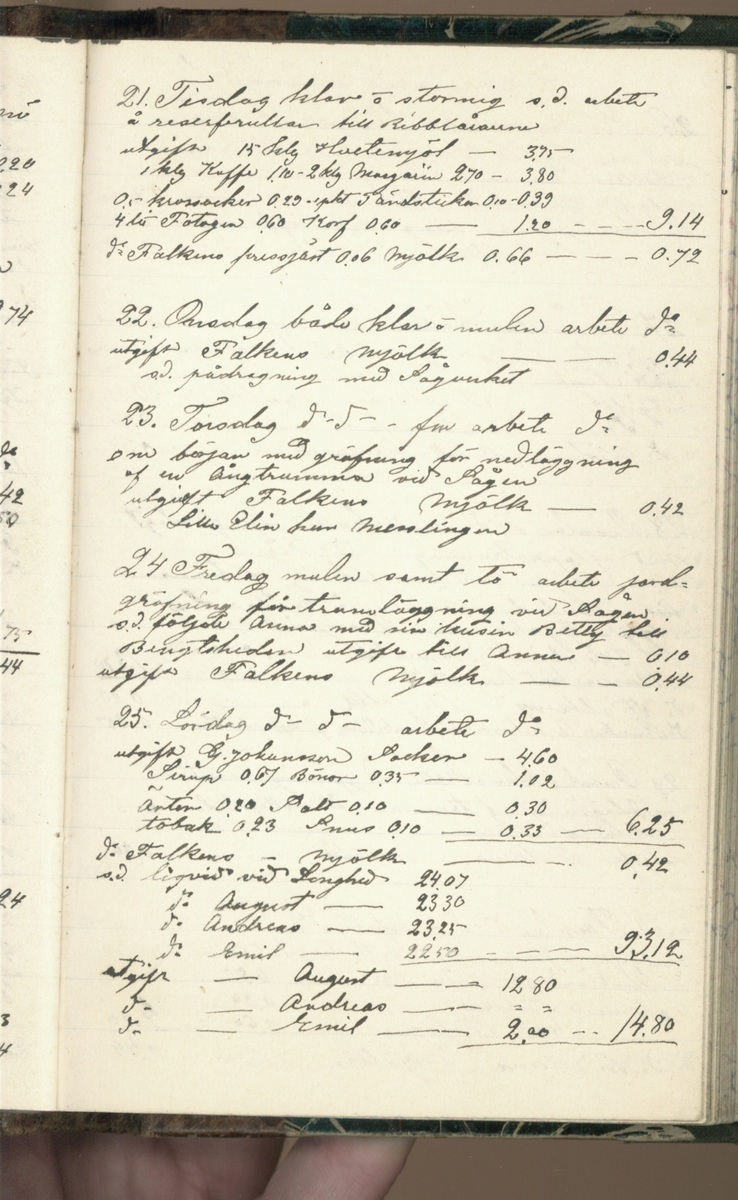 21. Tisdag klar o stormig s.d. arbete
å reserfrullar till Ribblåsarne
utgift 15 klg Hvetemjöl — 3.75
1 klg Kaffe 1.10 - 2 klg Margarin 2.70 - 3.80
0,5 krossocker 0.29 - 1 pkt Tändstickor 0.10 - 0.39
4 lit Fotogen 0.60 Korf 0.60 — 1.20 - - - 9.14
do Falkens pressjäst 0.06 Mjölk 0.66 — — - 0.72
22. Onsdag både klar o mulen arbete do
utgift Falkens Mjölk — — 0.44
s.d. pådragning med Sågverket
23. Torsdag do do - fm arbete do
em början med gräfning för nedläggning
af en Ångtrumma vid Sågen
utgift Falkens Mjölk — - 0.42
Lilla Elin har Messlingen
24 Fredag mulen samt tö arbete jord=
gräfning för trumläggning vid Sågen
s.d. följde Anna med sin kusin Betty till
Bengtsheden utgift till Anna — 0.10
utgift Falkens Mjölk — — 0.44
25. Lördag do do arbete do
utgift G. Johansson Socker — 4.60
Sirup 0.67 Bönor 0.35 — 1.02
Ärter 0.20 Salt 0.10 — 0.30
tobak 0.23 Snus 0.10 — 0.33 — 6.25
do Falkens - Mjölk — — 0.42
s.d. liqvid vid Linghed 24.07
do August — 23.30
do Andreas — 23.25
do Emil — 22.50 - — — 93.12
utgift — August — - 12.80
do — Andreas — " "
do — Emil — 2.00 - - 14.80